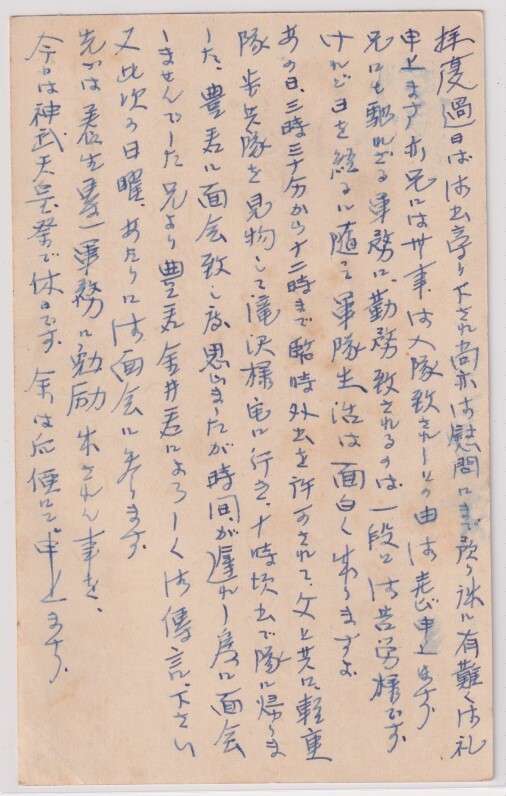 拝復過日は御出立下され尚亦御慰問にまで預り誠に有難く御礼
申上ます亦兄には無事御入隊致されしとの由御喜び申上ます
兄にも馴れざる軍務に勤務致されるのは一段と御苦労様です
けれど日を経るに随て軍隊生活は面白く成りますよ
あの日、三時三十分から十二時まで臨時外出を許可されて、父と共に輜重
隊歩兵隊を見物して滝沢様宅に行き、十時頃出で隊に帰りま
した、豊君に面会致し度、思いましたが時間が遅れし為に面会
しませんでした兄より豊君金井君によろしく御傳言下さい
又此次の日曜、あたりには御面会に参ります
先は君も専一軍務に勉励せられん事を、
今日は神武天皇祭で休日です 余は后便にて申上ます